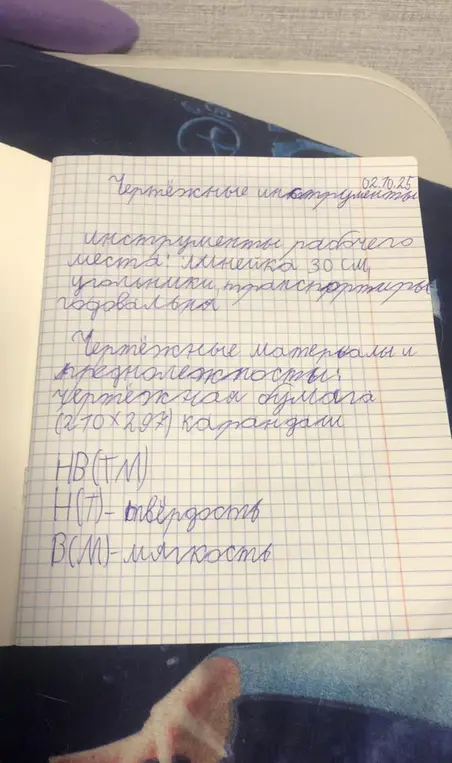 02.10.25
Чертёжные инструменты
инструменты рабочего
места: линейка 30 см,
угольники, транспортиры
годовальны
Чертёжные материалы и
преднолежносты:
чертёжная бумага
(210×297) карандаши
НВ(ТМ)
Н(Т)-твёрдость
В(М)-мягкость